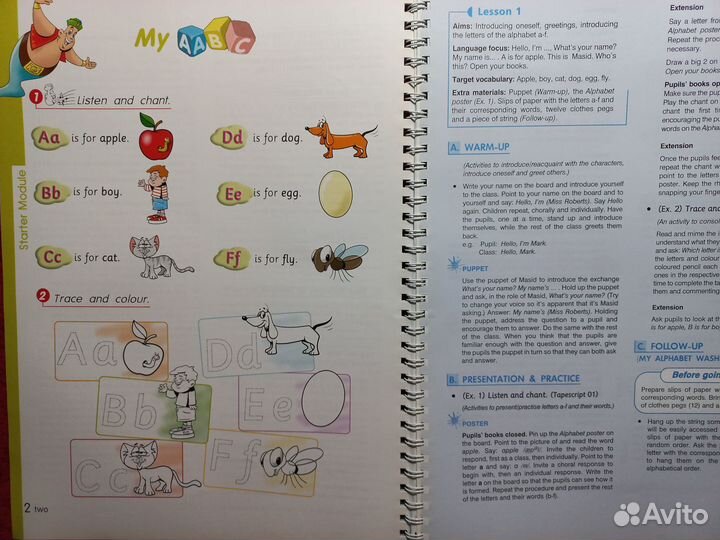 My AABC
1 Listen and chant.
Aa is for apple.
Dd is for dog.
Bb is for boy.
Ee is for egg.
Cc is for cat.
Ff is for fly.
Starter Module
2 Trace and colour.
Aa
Dd
Bb
Ee
Cc
Ff
2 two
Lesson 1
Aims: Introducing oneself, greetings, introducing
the letters of the alphabet a-f.
Language focus: Hello, I'm ..., What's your name?
My name is... . A is for apple. This is Masid. Who's
this? Open your books.
Target vocabulary: Apple, boy, cat, dog, egg, fly.
Extra materials: Puppet (Warm-up), the Alphabet
poster (Ex. 1). Slips of paper with the letters a-f and
their corresponding words, twelve clothes pegs
and a piece of string (Follow-up).
A. WARM-UP
(Activities to introduce/reacquaint with the characters,
introduce oneself and greet others.)
• Write your name on the board and introduce yourself
to the class. Point to your name on the board and to
yourself and say: Hello, I'm (Miss Roberts). Say Hello
again. Children repeat, chorally and individually. Have
the pupils, one at a time, stand up and introduce
themselves, while the rest of the class greets them
back.
e.g. Pupil: Hello, I'm Mark.
Class: Hello, Mark.
PUPPET
Use the puppet of Masid to introduce the exchange
What's your name? My name's ... . Hold up the puppet
and ask, in the role of Masid, What's your name? (Try
to change your voice so it's apparent that it's Masid
asking.) Answer: My name's (Miss Roberts). Holding
the puppet, address the question to a pupil and
encourage them to answer. Do the same with the rest
of the class. When you think that the pupils are
familiar enough with the question and answer, give
the pupils the puppet in turn so that they can both ask
and answer.
B. PRESENTATION & PRACTICE
• (Ex. 1) Listen and chant. (Tapescript 01)
(Activities to present/practise letters a-f and their words.)
POSTER
Pupils' books closed. Pin up the Alphabet poster on
the board. Point to the picture of and read the word
apple. Say: apple /æpl/. Invite the children to
respond, first as a class, then individually. Point to the
letter a and say: a /eɪ/. Invite a choral response to
begin with, then an individual response. Write the
letter a on the board so that the pupils can see how it
is formed. Repeat the procedure and present the rest
of the letters and their words (b-f).
Extension
Say a letter from
Alphabet poster
Repeat the procedure
necessary.
Draw a big 2 on
Open your books
Pupils' books op
Make sure the pup
Play the chant on
chant the first tim
encouraging the pu
words on the Alphab
Extension
Once the pupils fee
repeat the chant w
the pupils in two
poster. Keep the t
snapping your finge
• (Ex. 2) Trace and
(An activity to conso
Read and mime the i
understand what they
and ask: Which letter i
the letters and colour
coloured pencil each
ones in the respective
time to complete the ta
them and commenting
Extension
Ask pupils to look at th
is for apple, B is for bo
C. FOLLOW-UP
(MY ALPHABET WASH
Before goin
Prepare slips of paper w
corresponding words. Brin
of clothes pegs (12) and a
• Hang up the string som
will be easily accessed
slips of paper with the
random order. Ask the
letter with the correspon
to hang them on the
alphabetical order.
Avito